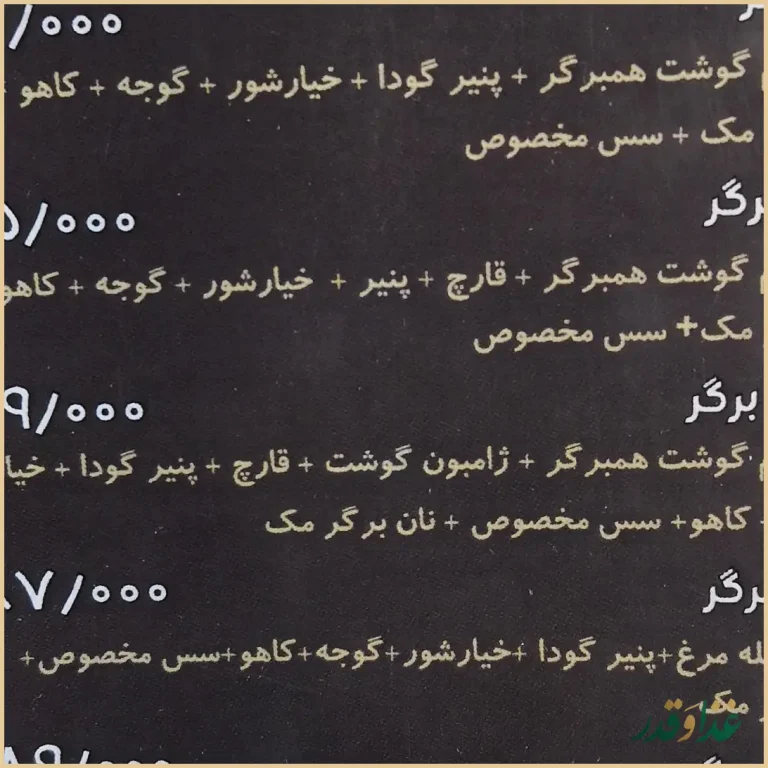 /۰۰۰
گوشت همبرگر + پنیر گودا + خیارشور + گوجه + کاهو
مک + سس مخصوص
برگر
۵/۰۰۰
گوشت همبرگر + قارچ + پنیر + خیارشور + گوجه + کاهو
مک+ سس مخصوص
برگر
۹/۰۰۰
گوشت همبرگر + ژامبون گوشت + قارچ + پنیر گودا + خیا
+ کاهو+ سس مخصوص + نان برگر مک
برگر
۷/۰۰۰
مرغ+پنیر گودا +خیارشور+گوجه+کاهو+سس مخصوص+
مک
غذا و قدر